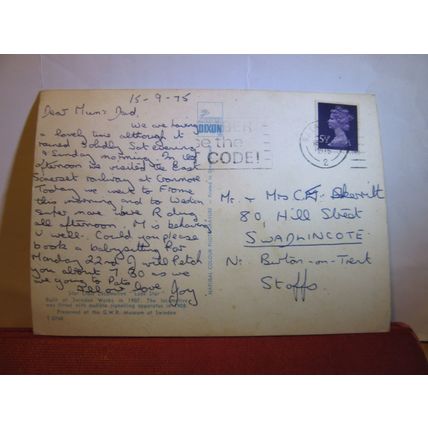 15-9-75
Dear Mum & Dad,
We are having
a lovely time although it
rained solidly Sat evening
& Sunday morning. In the
afternoon we visited the East
Somerset railway at Cranmore.
Today we went to Frome
this morning and to Weston
super mare
all afternoon. M is behaving
v well. Could you please
book a babysitting for
Monday 22nd I will fetch
you about 7.30 as we
are going to Pats
All our love
Joy
DIXON
BER
se the
T CODE!
5½P
2
Mr. & Mrs C. Skerritt
80, Hill Street
SWADLINCOTE
Nr. Burton-on-Trent
Staffs
NATURAL COLOUR
Built at Swindon Works in 1907. The locomotive
was fitted with audible signalling apparatus in 1908.
Presented at the G.W.R. Museum at Swindon